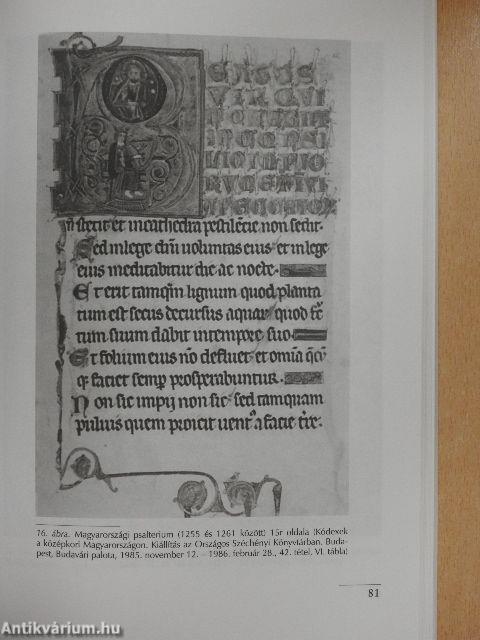 EATUS
VIR QUI
NON ABIIT
IN CONSI
LIO IMPIO
RUM ET IN VI
A PECCATOR
n̄ stetit et in cathedra pestilēcie non sedit.
Sed in lege dn̄i uoluntas eius et in lege
eius meditabitur die ac nocte.
Et erit tamqm̄ lignum quod planta
tum est secus decursus aquar quod fc̄
tum suum dabit in tempore suo
Et folium eius nō defluet et om̄ia qc̄ū
q faciet semp prosperabuntur.
Non sic impij non sic sed tamquam
puluis quem proicit uent a facie tr̄e.
16. ábra. Magyarországi psalterium (1255 és 1261 között) 15r oldala (Kódexek
a középkori Magyarországon. Kiállítás az Országos Széchényi Könyvtárban. Buda-
pest, Budavári palota, 1985. november 12. – 1986. február 28., 42. tétel, VI. tábla)
81
Antikvárium.hu